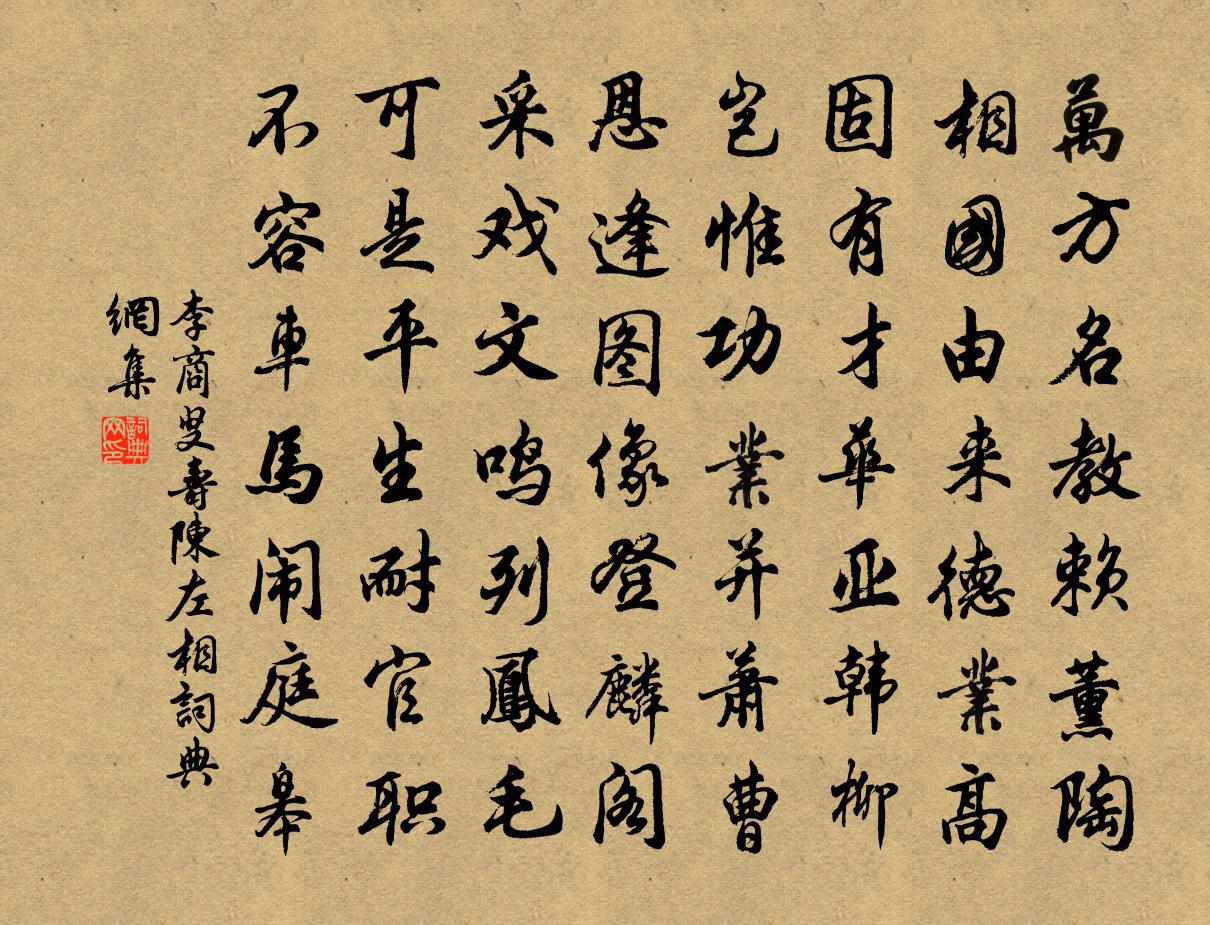 萬方名教赖薰陶
相國由来德業髙
固有才華亚韩柳
岂惟功業并萧曹
恩逢图像登麟阁
采戏文鸣列鳳毛
可是平生耐官职
不容車馬闹庭皋
李商叟壽陳左相詞典
網集
詞典
网印